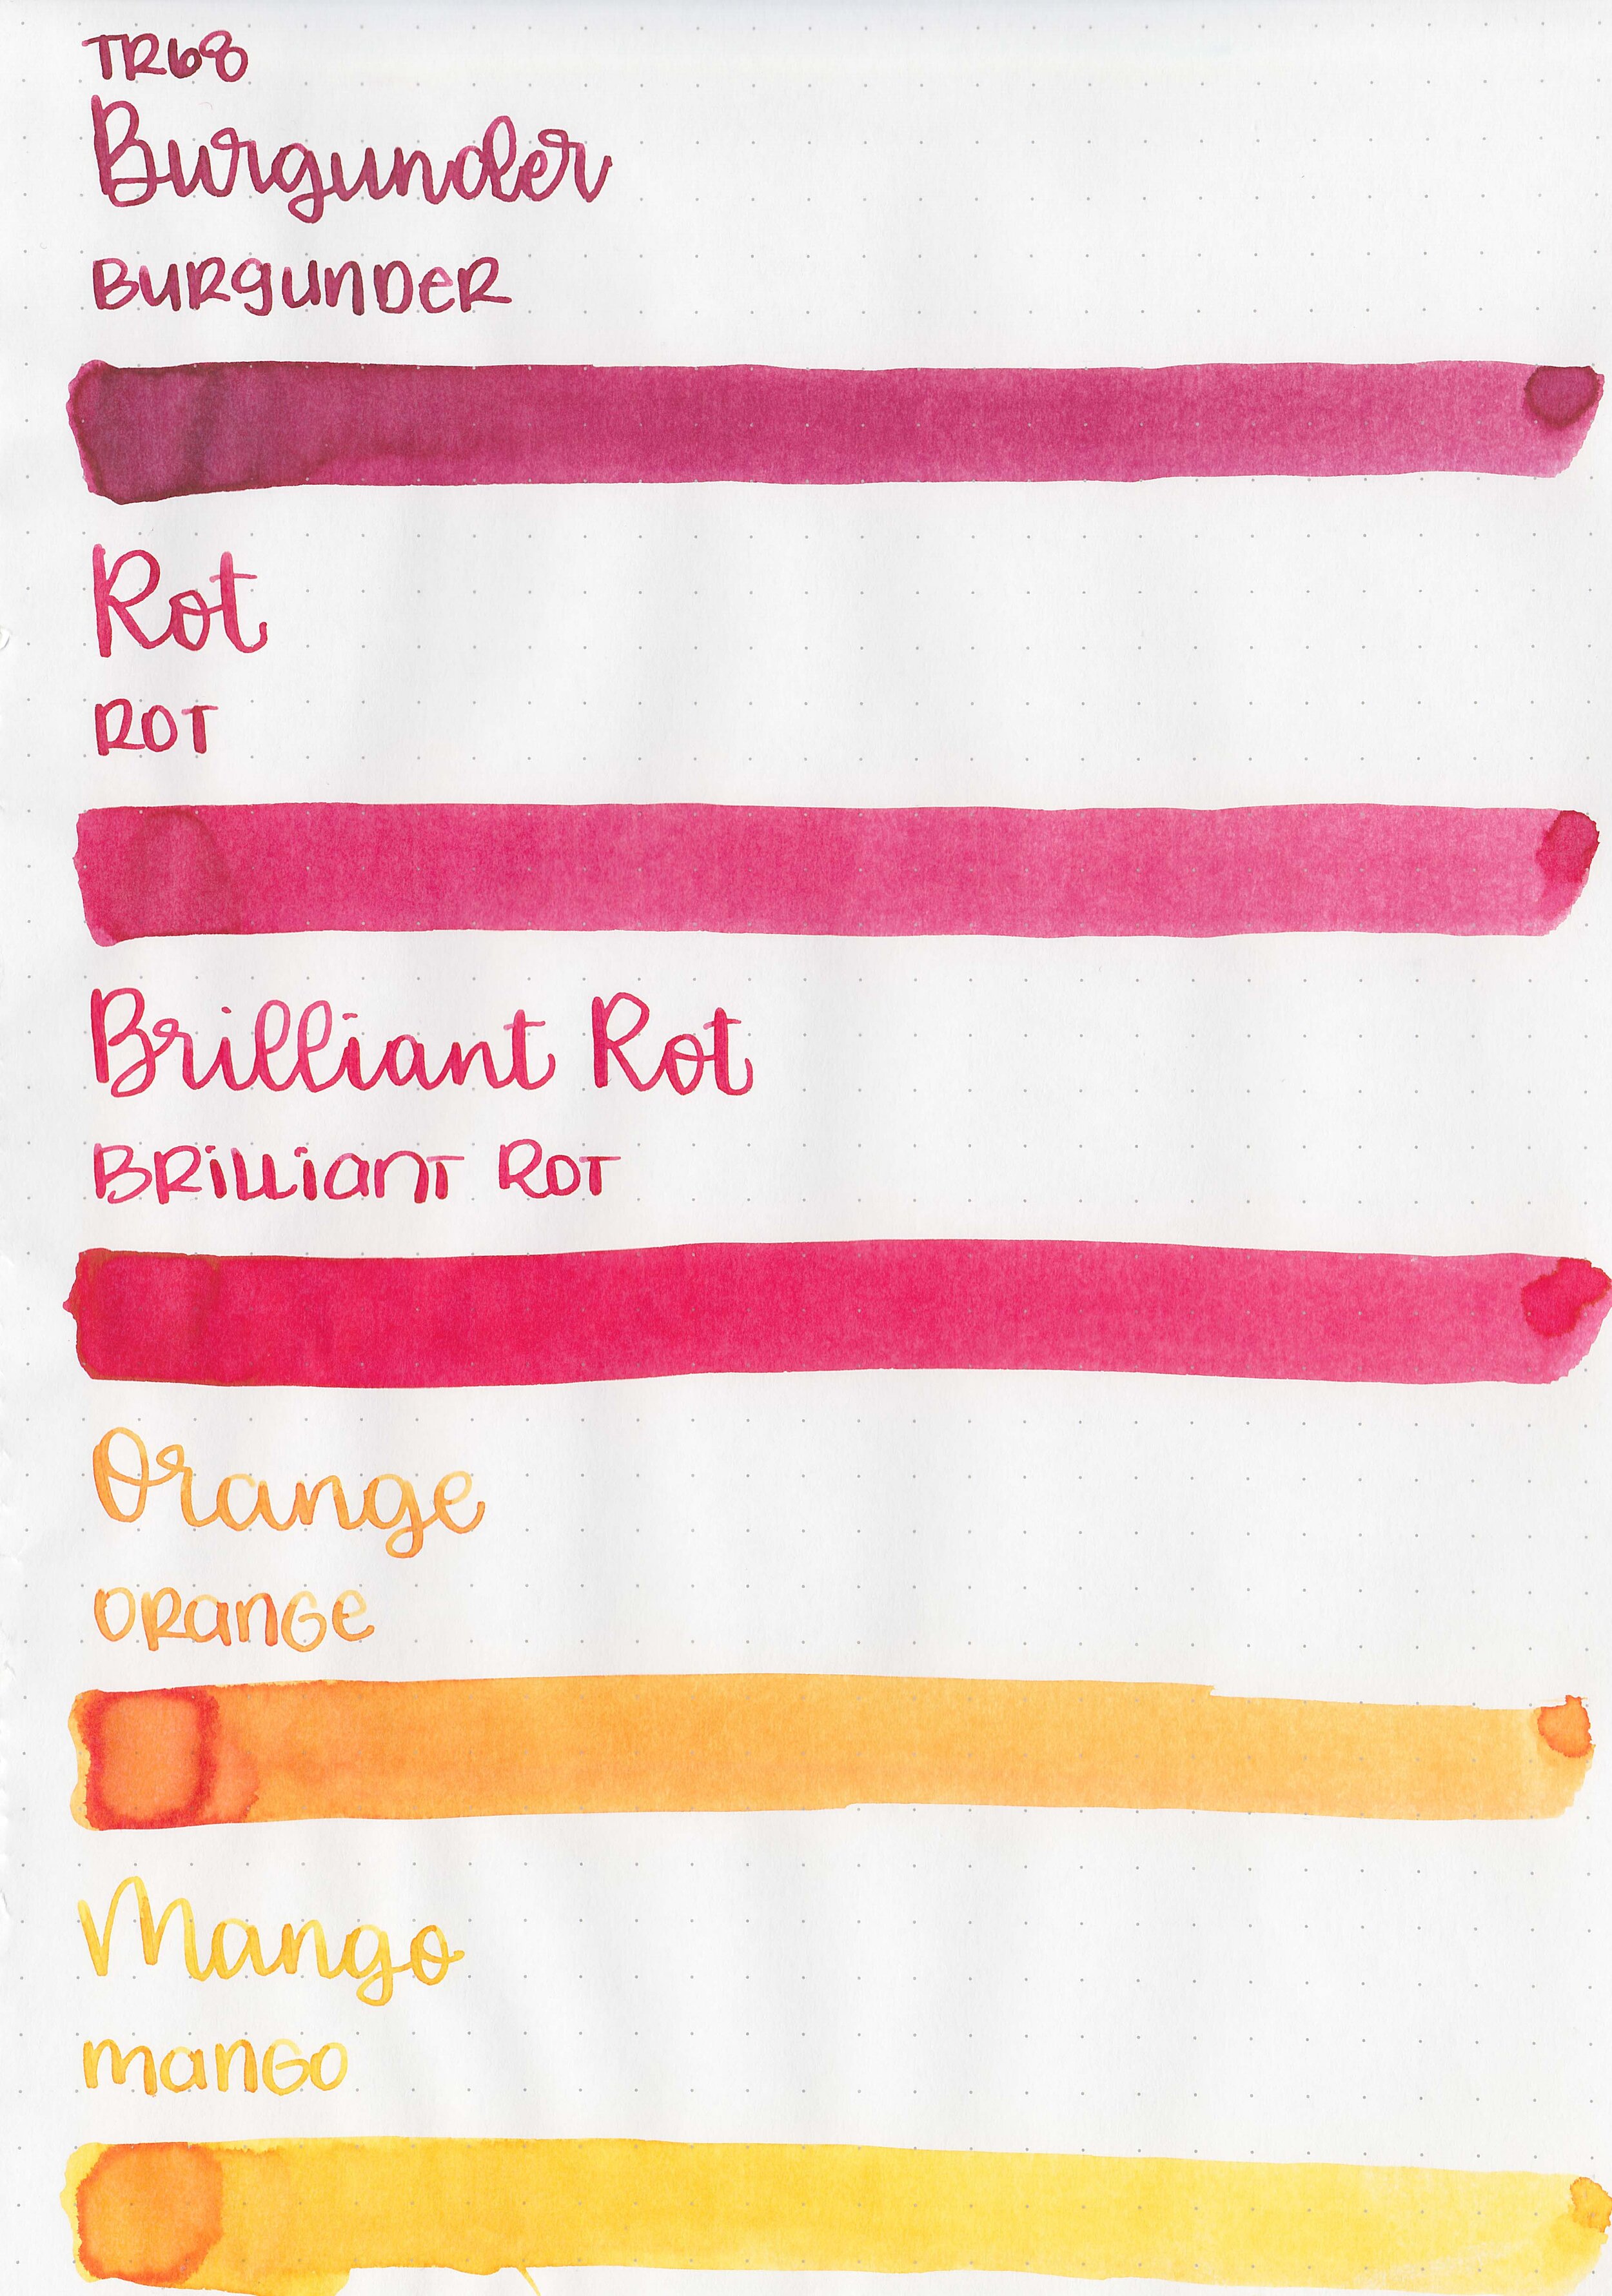 TR68
Burgunder
BURGUNDER
Rot
ROT
Brilliant Rot
BRILLIANT ROT
Orange
ORANGE
Mango
MANGO